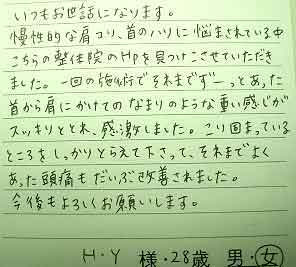 いつもお世話になります。
慢性的な肩コリ、首のハリに悩まされている中
こちらの整体院のHPを見つけこさせていただき
ました。一回の施術でそれまでずーっとあった
首から肩にかけてのなまりのような重い感じが
スッキリととれ、感激しました。こり固まっている
ところをしっかりとらえて下さって、それまでよく
あった頭痛もだいぶ改善されました。
今後もよろしくお願いします。
H・Y 様・28歳 男・女